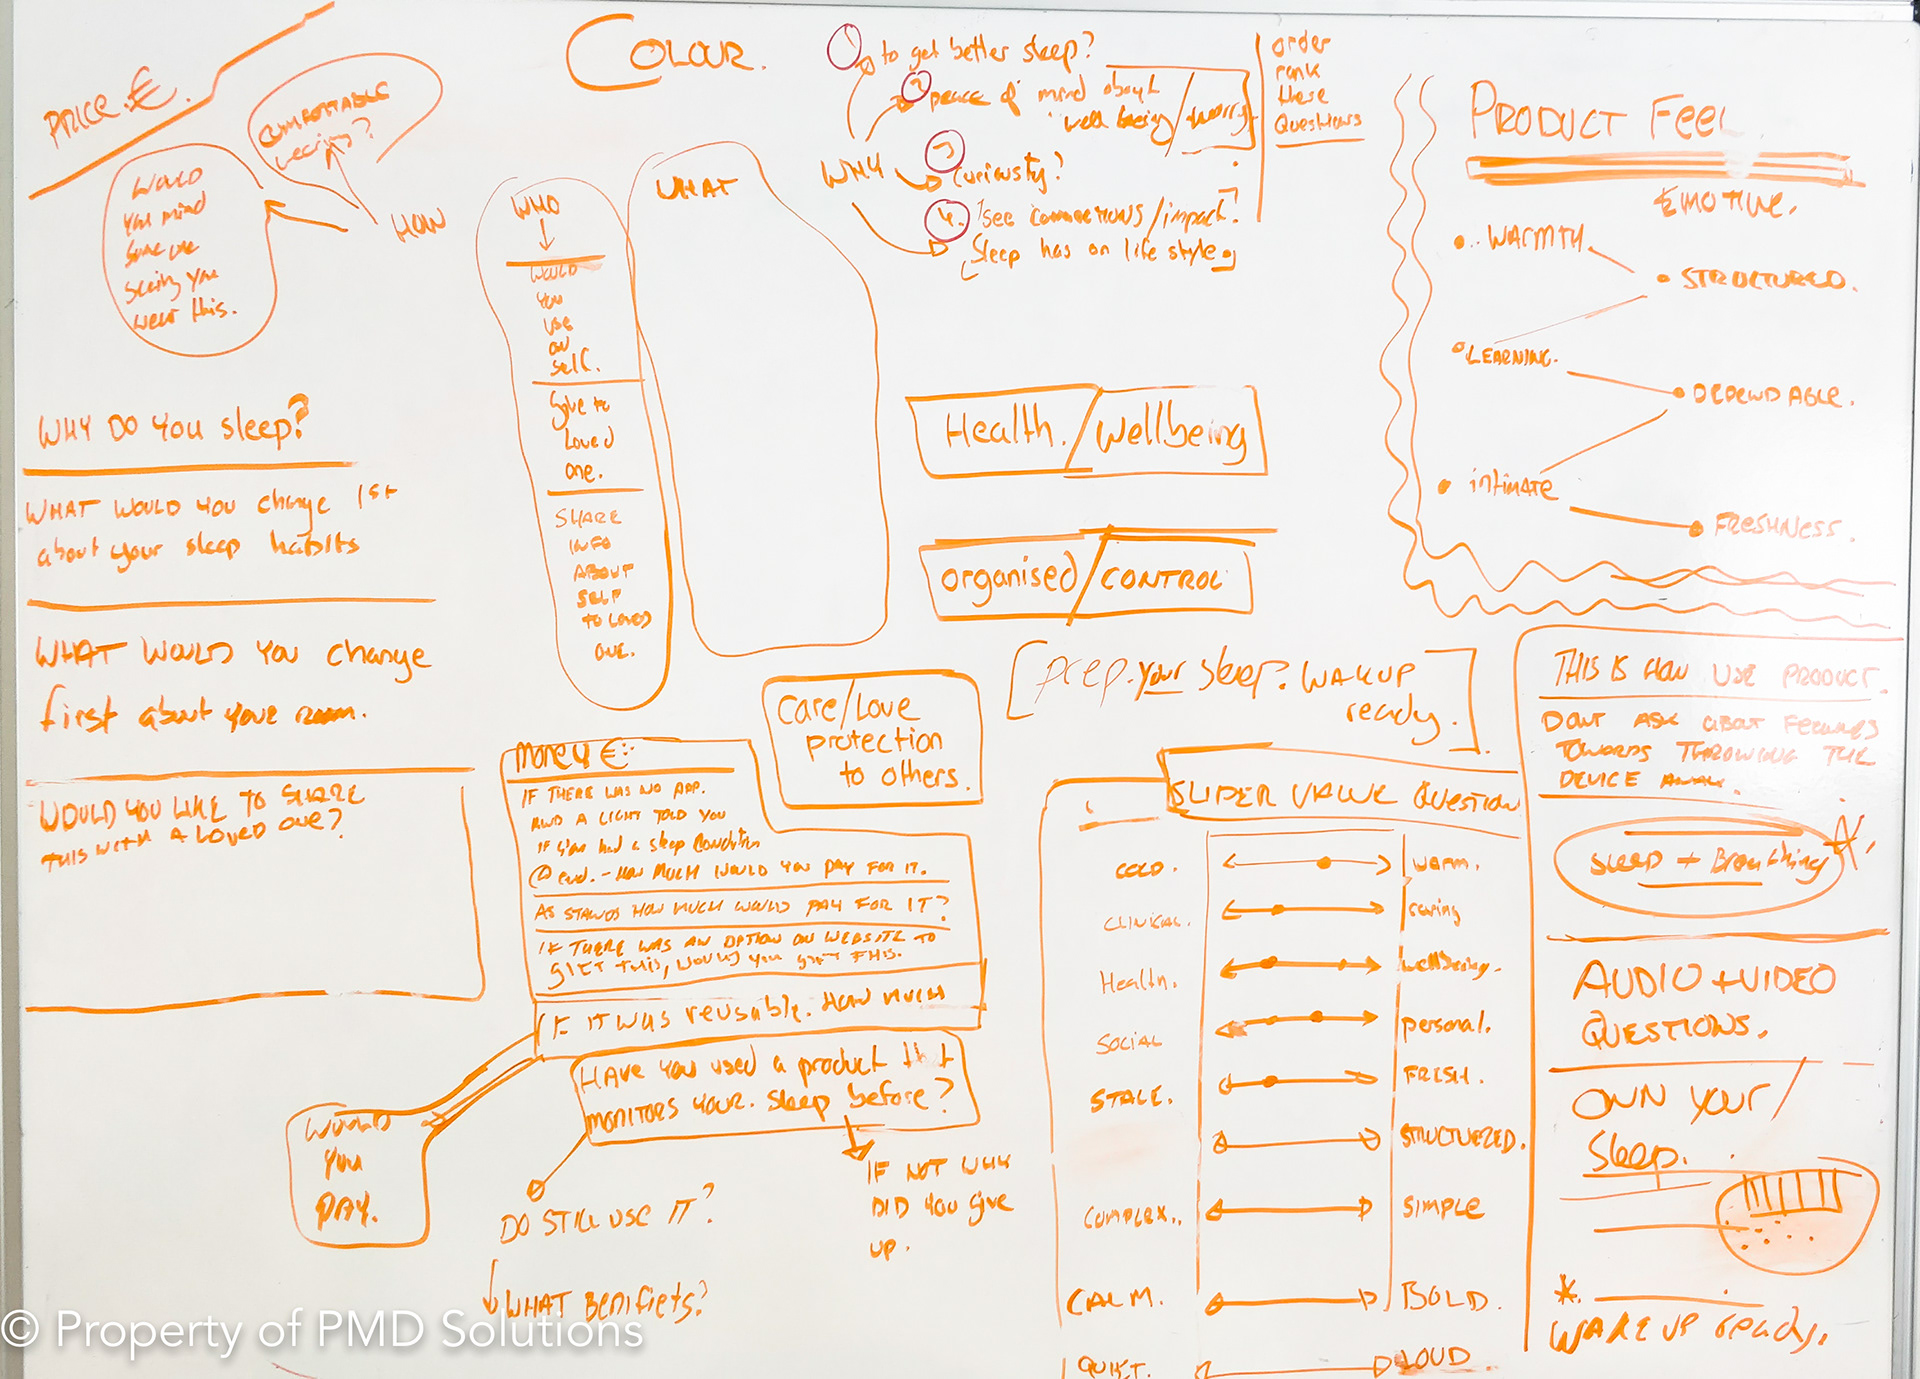 PRICE. €.
COMFORTABLE
wearing?
WOULD
you mind
someone
seeing you
wear this.
HOW
COLOUR.
WHO
WOULD
you
use
on
self.
Give to
Loved
one.
SHARE
INFO
ABOUT
SELF
TO LOVED
ONE.
WHAT
WHY
1
to get better sleep?
2
peace of mind about
well being / worry
3
curiousty?
4.
see connections/impact?
Sleep has on life style
order
rank
these
Questions
PRODUCT FEEL
EMOTIVE.
WARMTH.
STRUCTURED.
LEARNING.
DEPENDABLE.
intimate
FRESHNESS.
WHY DO YOU sleep?
WHAT WOULD YOU change 1st
about your sleep habits
WHAT WOULD YOU change
first about your room.
WOULD YOU LIKE TO SHARE
THIS WITH A LOVED ONE?
Health. / Wellbeing
organised / CONTROL
[prep. your sleep. WAKUP
ready.]
Care/Love
protection
to others.
Money €
IF THERE WAS NO APP.
AND A LIGHT TOLD YOU
IF you had a sleep condition
@ end. - HOW MUCH WOULD YOU PAY FOR IT.
AS STANDS HOW MUCH WOULD PAY FOR IT?
IF THERE WAS AN OPTION ON WEBSITE TO
GIFT THIS, WOULD YOU GIFT THIS.
IF IT WAS reusable. HOW MUCH
WOULD
YOU
PAY.
HAVE YOU used a product that
MONITORS YOUR. Sleep before?
DO STILL USE IT?
WHAT Benifiets?
IF NOT WHY
DID YOU GIVE
UP.
SLIDER VALUE QUESTION
COLD. WARM.
CLINICAL. caring
Health. wellbeing.
SOCIAL personal.
STALE. FRESH.
STRUCTURED.
COMPLEX.. SIMPLE
CALM. BOLD.
QUIET. LOUD
THIS IS HOW USE PRODUCT.
DONT ASK ABOUT FEELINGS
TOWARDS THROWING THE
DEVICE AWAY.
Sleep + Breathing
AUDIO + VIDEO
QUESTIONS.
OWN YOUR
Sleep.
WAKE UP ready.
© Property of PMD Solutions